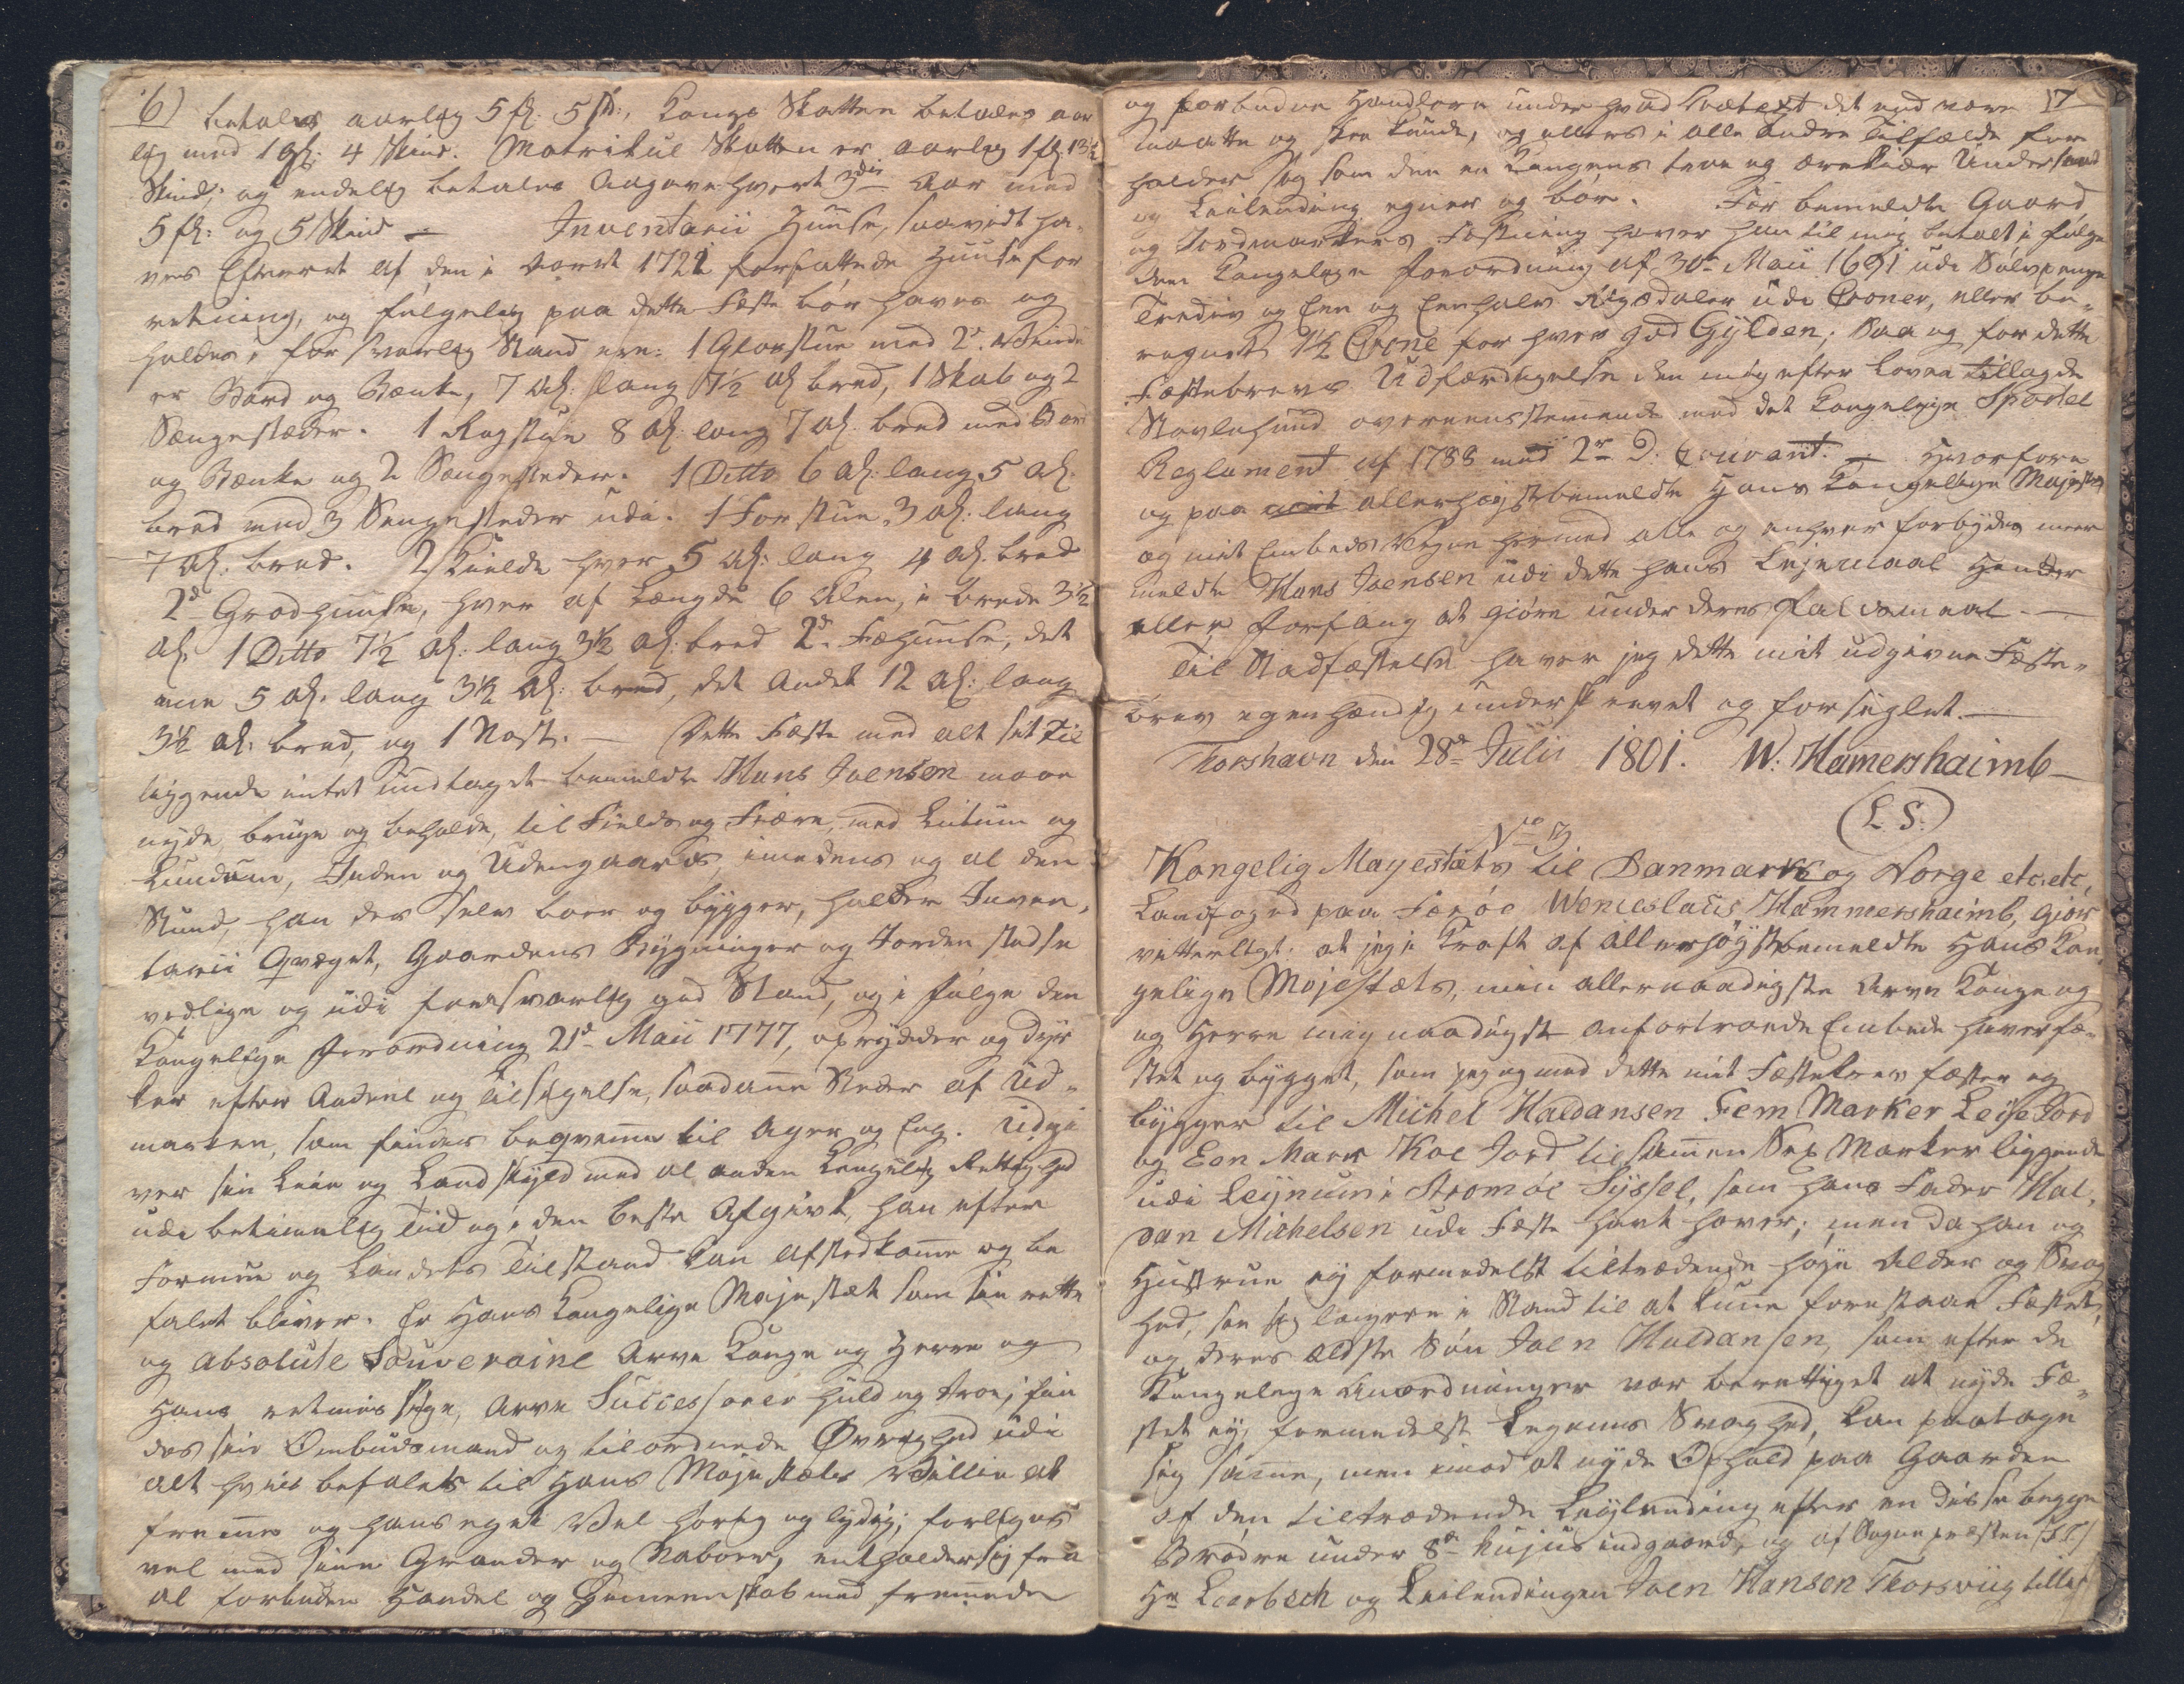 6)
betales aarlig 5 fl: 5 sk:, Konge Skatten betales aar
lig med 1 gl: 4 Skind. Matrikul Skatten er aarlig 1 fl. 13½
Skind; og endelig betales Aagave hvert 3die Aar med
5 fl: og 5 Skind — Inventarii Huuse, saavidt ha-
ves Efterret af den i Aaret 1721 forfattede Huuse for
retning, og følgelig paa dette Fæste bør haves og
holdes i forsvarlig Stand ere: 1 Glasstue med 2de Vindu
er Bord og Bænke, 7 Al: lang 7½ Al bred, 1 Skab og 2
Sængestæder. 1 Rogstue 8 Al: lang 7 Al. bred med Bord
og Bænke og 2 Sængesteder. 1 Ditto 6 Al: lang 5 Al.
bred med 3 Sengesteder udi. 1 Forstue 3 Al: lang
7 Al: bred. 2 Kielde hver 5 Al: lang 4 Al. bred
2de Groshuuse, hver af Længde 6 Alen, i brede 3½
Al. 1 Ditto 7½ Al: lang 3½ Al: bred 2de Fæhuuse, det
ene 5 Al. lang 3½ Al: bred, det andet 12 Al: lang
3½ Al: bred, og 1 Nøst. — Dette Fæste med alt sit til
liggende intet undtaget bemeldte Hans Joensen maae
nyde, bruge og beholde, til Fields og Fiære, med Lutum og
Lundum, Inden og Udengaards, imedens og al den
Stund, han der selv boer og bygger, holder Inven-
tarii Qvæget, Gaardens Bygninger og Jorden stedse
vedlige og udi forsvarlig god Stand, og i følge den
Kongelige Forordning 21de Maii 1777, oprydder og dyr
ker efter Anviil og Tilsigelse, saadane Steder af Ud-
marken, som findes beqveme til Ager og Eng. Udgi
ver sin Leie og Landskyld med al anden Kongelig Rettighed
udi betimelig Tiid og i den beste Afgivt, han efter
Formue og Landets Tilstand kan afstedkome og be
falet bliver. Er Hans Kongelige Majestæt som sin rette
og absolute Souveraine Arve Konge og Herre og
Hans retmæssige, Arve Successorer huld og troe; sin
des sin Ombudsmand og tilordnede Øvrighed udi
alt hvis befales til Hans Majestæts Villie at
freme og hans eget Vel hørig og lydig; forliges
vel med sine Grander og Naboer, entholder sig fra
al forbuden Handel og Gemeenskab med fremede
17
og forbudne Handlere under hvad Prætext det end være
maatte og skee kunde, og ellers i alle andre Tilfælde for
holder sig som den en Kongens troe og ærekiær Undersaat
og Leilending egner og bør. For bemeldte Gaard
og Jordmarkers Fæstning haver han til mig betalt i følge
den Kongelige Forordning af 30te Maii 1691 udi Sølvpenge
Tredive og Een og Eenhalv Rigsdaler udi Croner, eller be-
regnet 1½ Crone for hver god Gylden; Saa og for dette
Fæstebrevs Udfærdigelse den mig efter Loven tillagde
Stavlehund overeensstemende med det Kongelige Sportel
Reglament af 1788 med 2de D. Courant. — Hvorfore
og paa allerhøystbemeldte Hans Kongelige Majestæts
og mit Embeds Vegne hermed alle og enhver forbydes meer
meldte Hans Joensen udi dette hans Lejemaal Hinder
eller Forfang at giøre under deres Faldsmaal. —
Til Stadfæstelse haver jeg dette mit udgivne Fæste-
brev egenhændig underskrevet og forseglet. —
Thorshavn den 28de Julii 1801. W. Hamershaimb —
(L. S.)
No 13
Kongelig Mayestæts til Danmark og Norge etc. etc.
Landfoged paa Færöe Wenceslaus Hammershaimb, Giör
vitterligt: at jeg i Kraft af allerhøystbemeldte Hans Kon
gelige Majestæts, min allernaadigste Arve Konge og
og Herre mig naadigst anfortroede Embede haver fæ-
stet og bygget, som jeg og med dette mit Fæstebrev fæster og
bygger til Michel Haldansen Fem Marker Leje Jord
og Een Mark Koe Jord tilsamen Sex Marker liggende
udi Leijnum i Strömöe Syssel, som hans Fader Hal-
dan Michelsen udi Fæste havt haver; men da han og
Hustrue ey formedelst tiltrædende høye Alder og Svag
hed, see sig længere i Stand til at kune forestaae Fæstet,
og deres ældste Søn Joen Haldansen, som efter de
Kongelige Anordninger var berettiget at nyde Fæ-
stet ey, formedelst Legems Svaghed, kan paatage
sig same, men imod at nyde Ophold paa Gaarden
af den tiltrædende Leylending efter en disse begge
Brödre under 8de hujus indgaaed, og af Sogne præsten (S. T.)
Hr Loerbech og Leilendingen Joen Hansen Thorsviig tillige